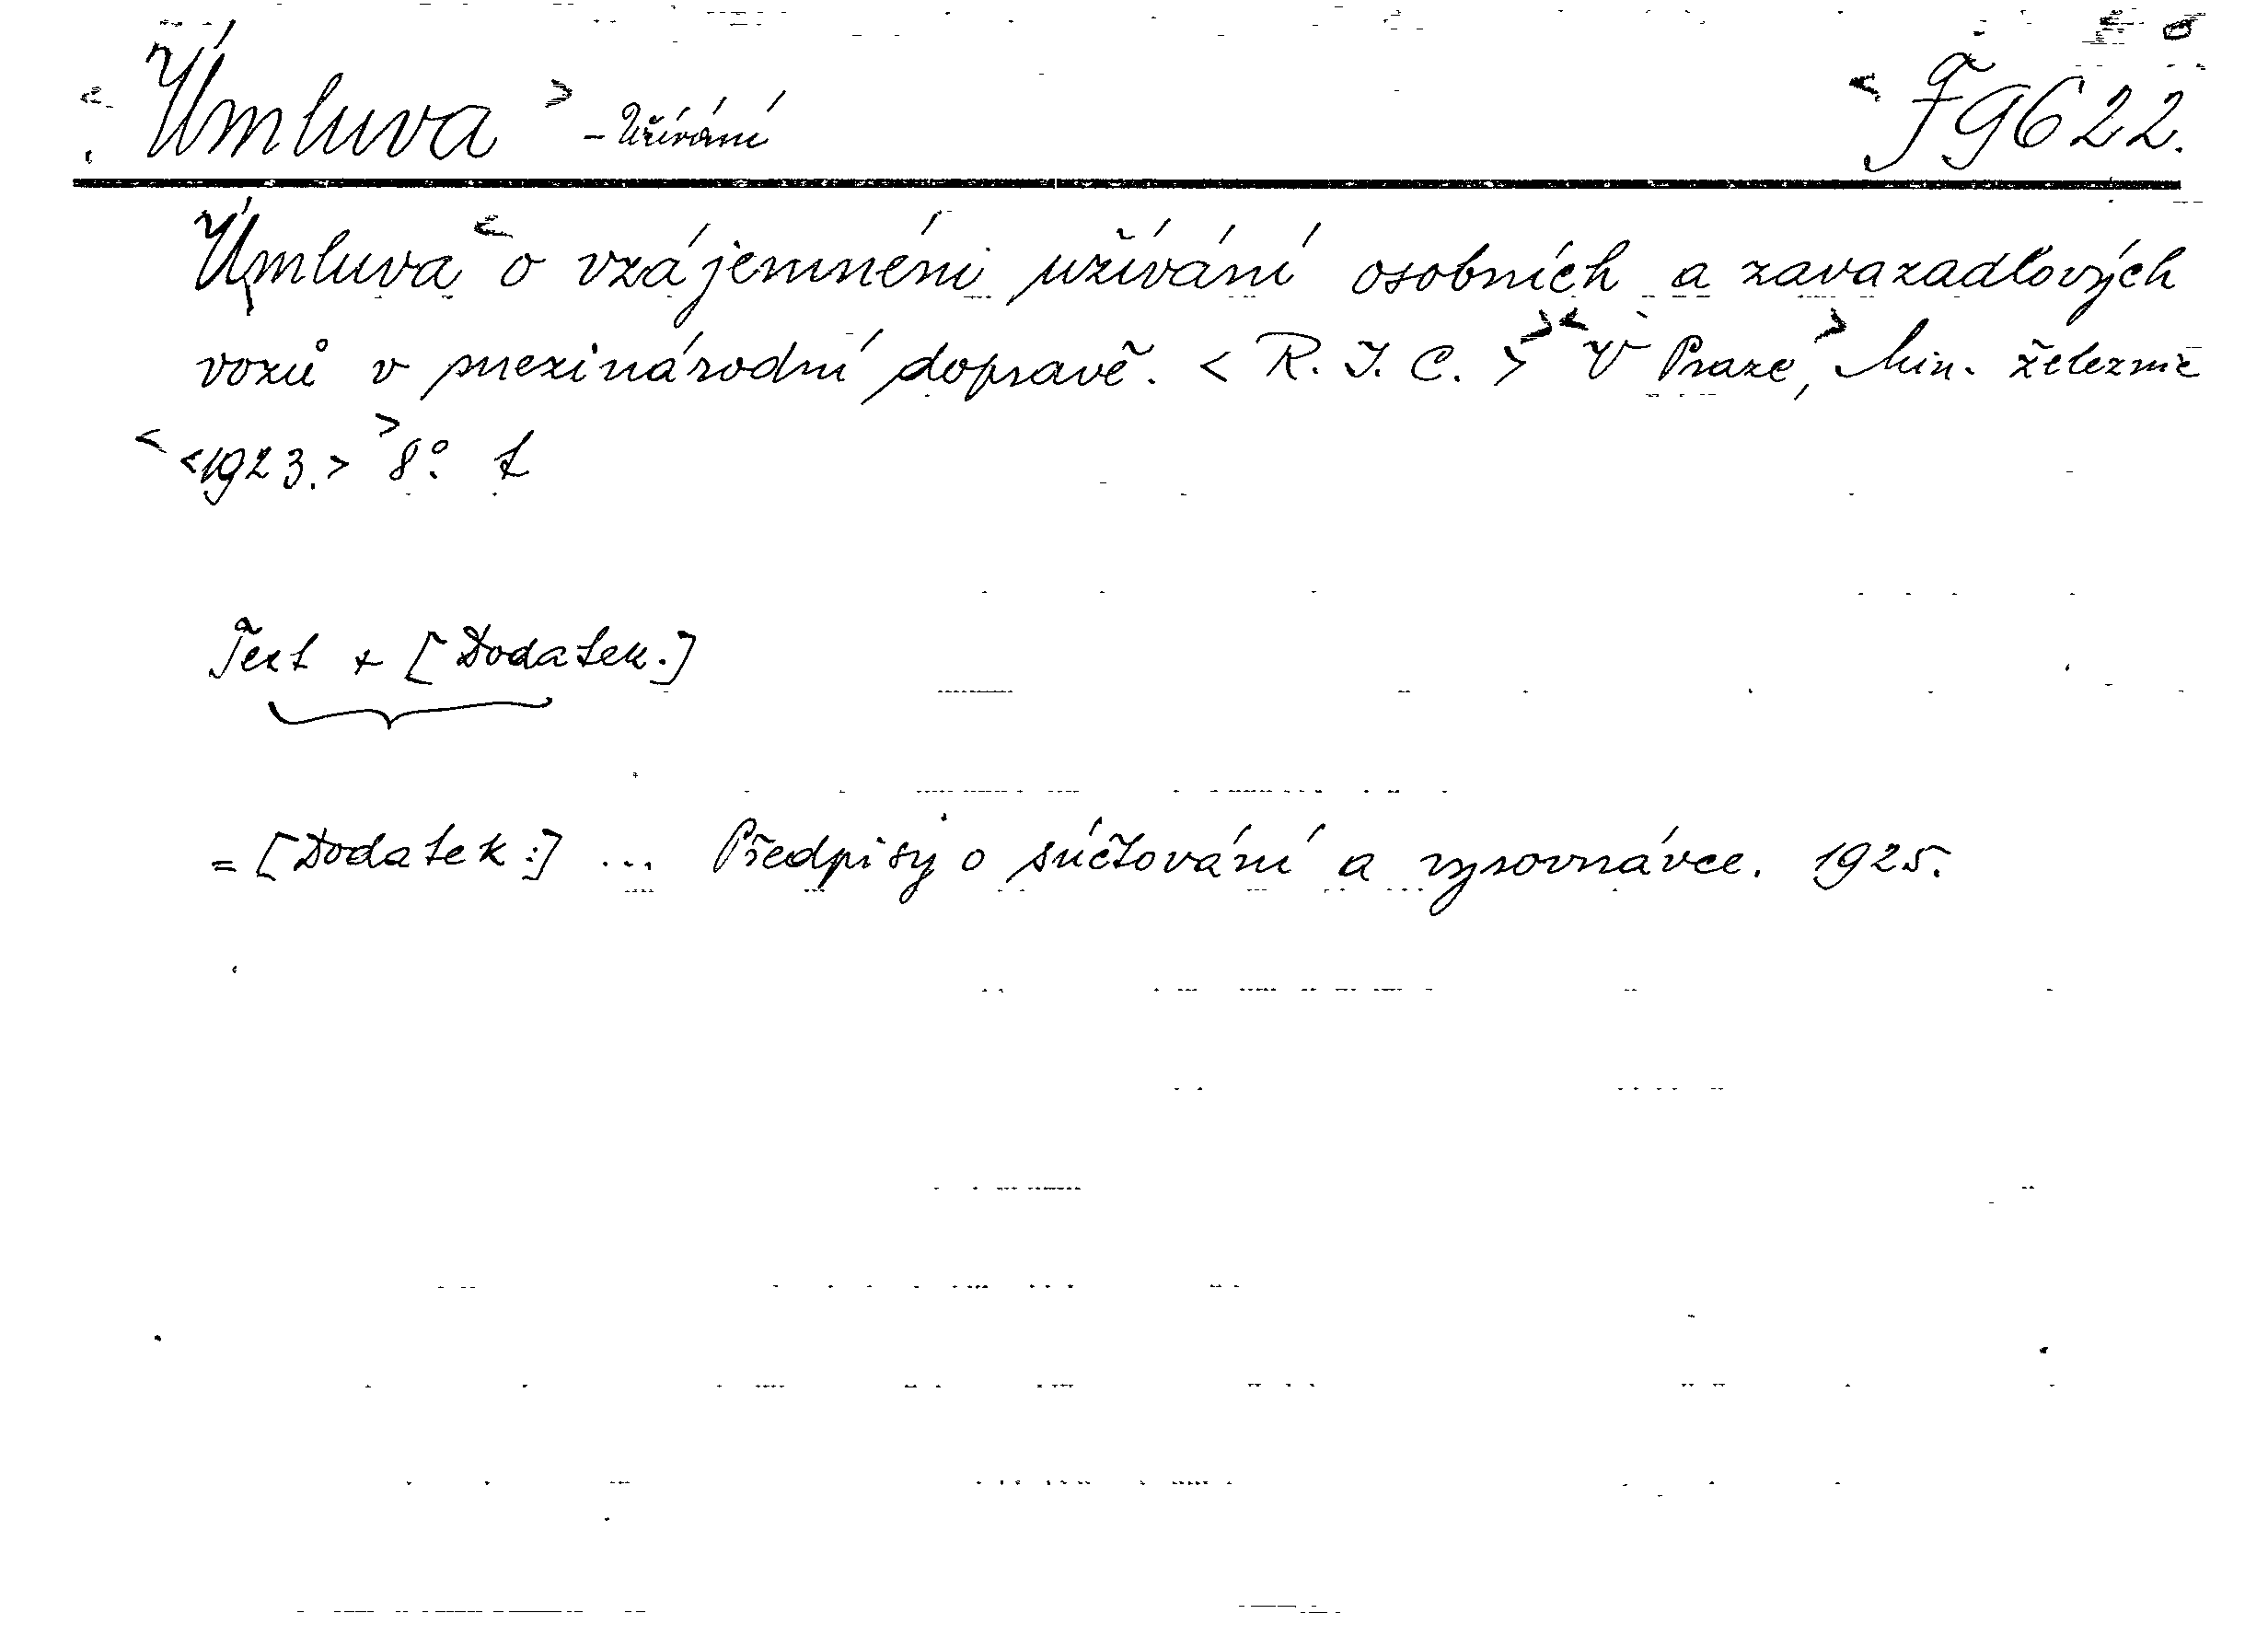 < Úmluva > - Užívání < F 9622.
Úmluva < o vzájemném užívání osobních a zavazadlových
vozů v mezinárodní dopravě. < R. I. C. > > < V Praze, > Min. železnic
< <1923.> > 8°. t
Text + [Dodatek.]
= [Dodatek:] ... Předpisy o súčtování a vyrovnávce. 1925.